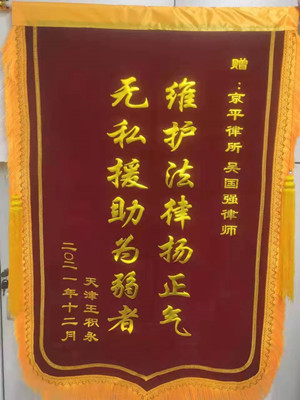 赠：京平律所 吴国强律师
维护法律扬正气
无私援助为弱者
天津王积永
二〇二一年十二月